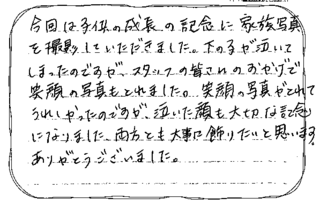 今回は子供の成長の記念に家族写真
を撮影していただきました。下の子が泣いて
しまったのですが、スタッフの皆さんのおかげで
笑顔の写真もとれました。笑顔の写真がとれて
うれしかったのですが、泣いた顔も大切な記念
になりました。両方とも大事に飾りたいと思います。
ありがとうございました。